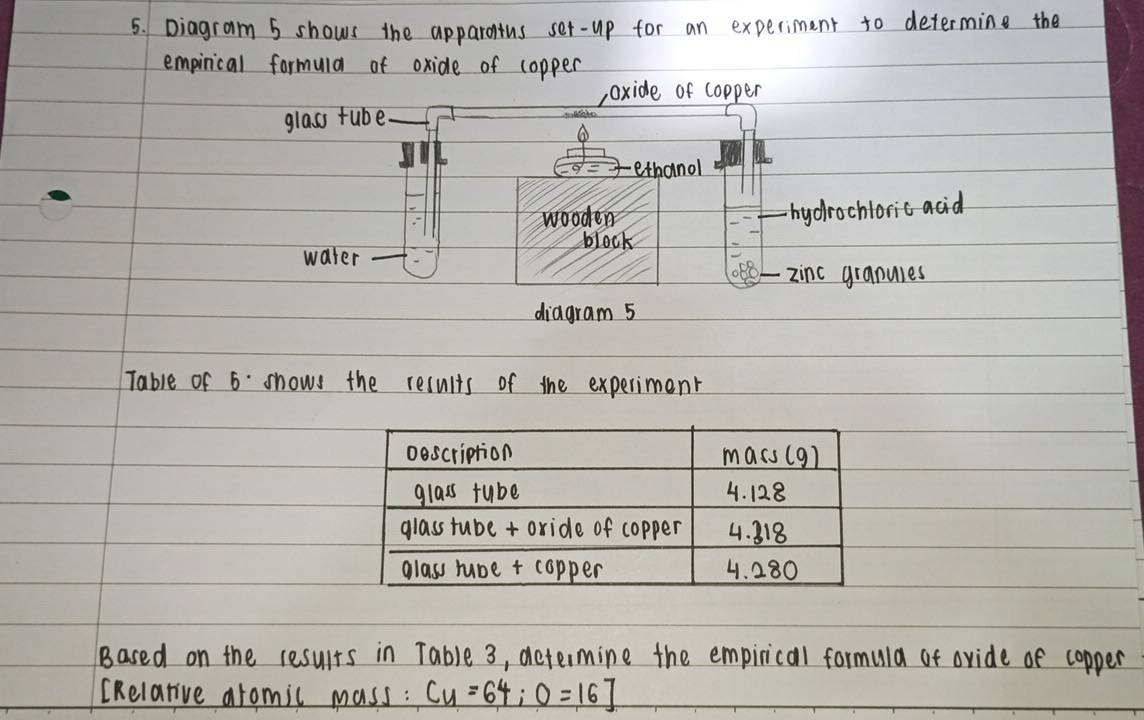 5. Diagram 5 shows the apparatus set-up for an experiment to determine the
empirical formula of oxide of copper
oxide of copper
glass tube
ethanol
wooden
block
hydrochloric acid
water
zinc granules
diagram 5
Table of 5. shows the results of the experiment
Description mass (g)
glass tube 4.128
glass tube + oxide of copper 4.318
glass tube + copper 4.280
Based on the results in Table 3, determine the empirical formula of oxide of copper
[Relative atomic mass : Cu = 64 ; O = 16]